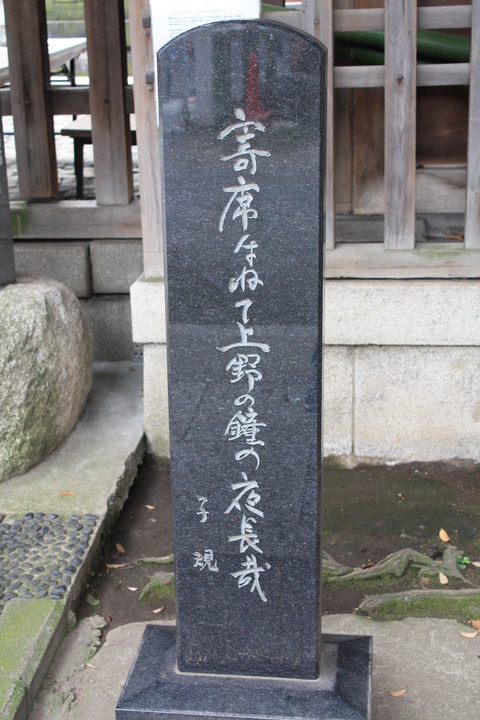 寄席はねて上野の鐘の夜長哉
子規